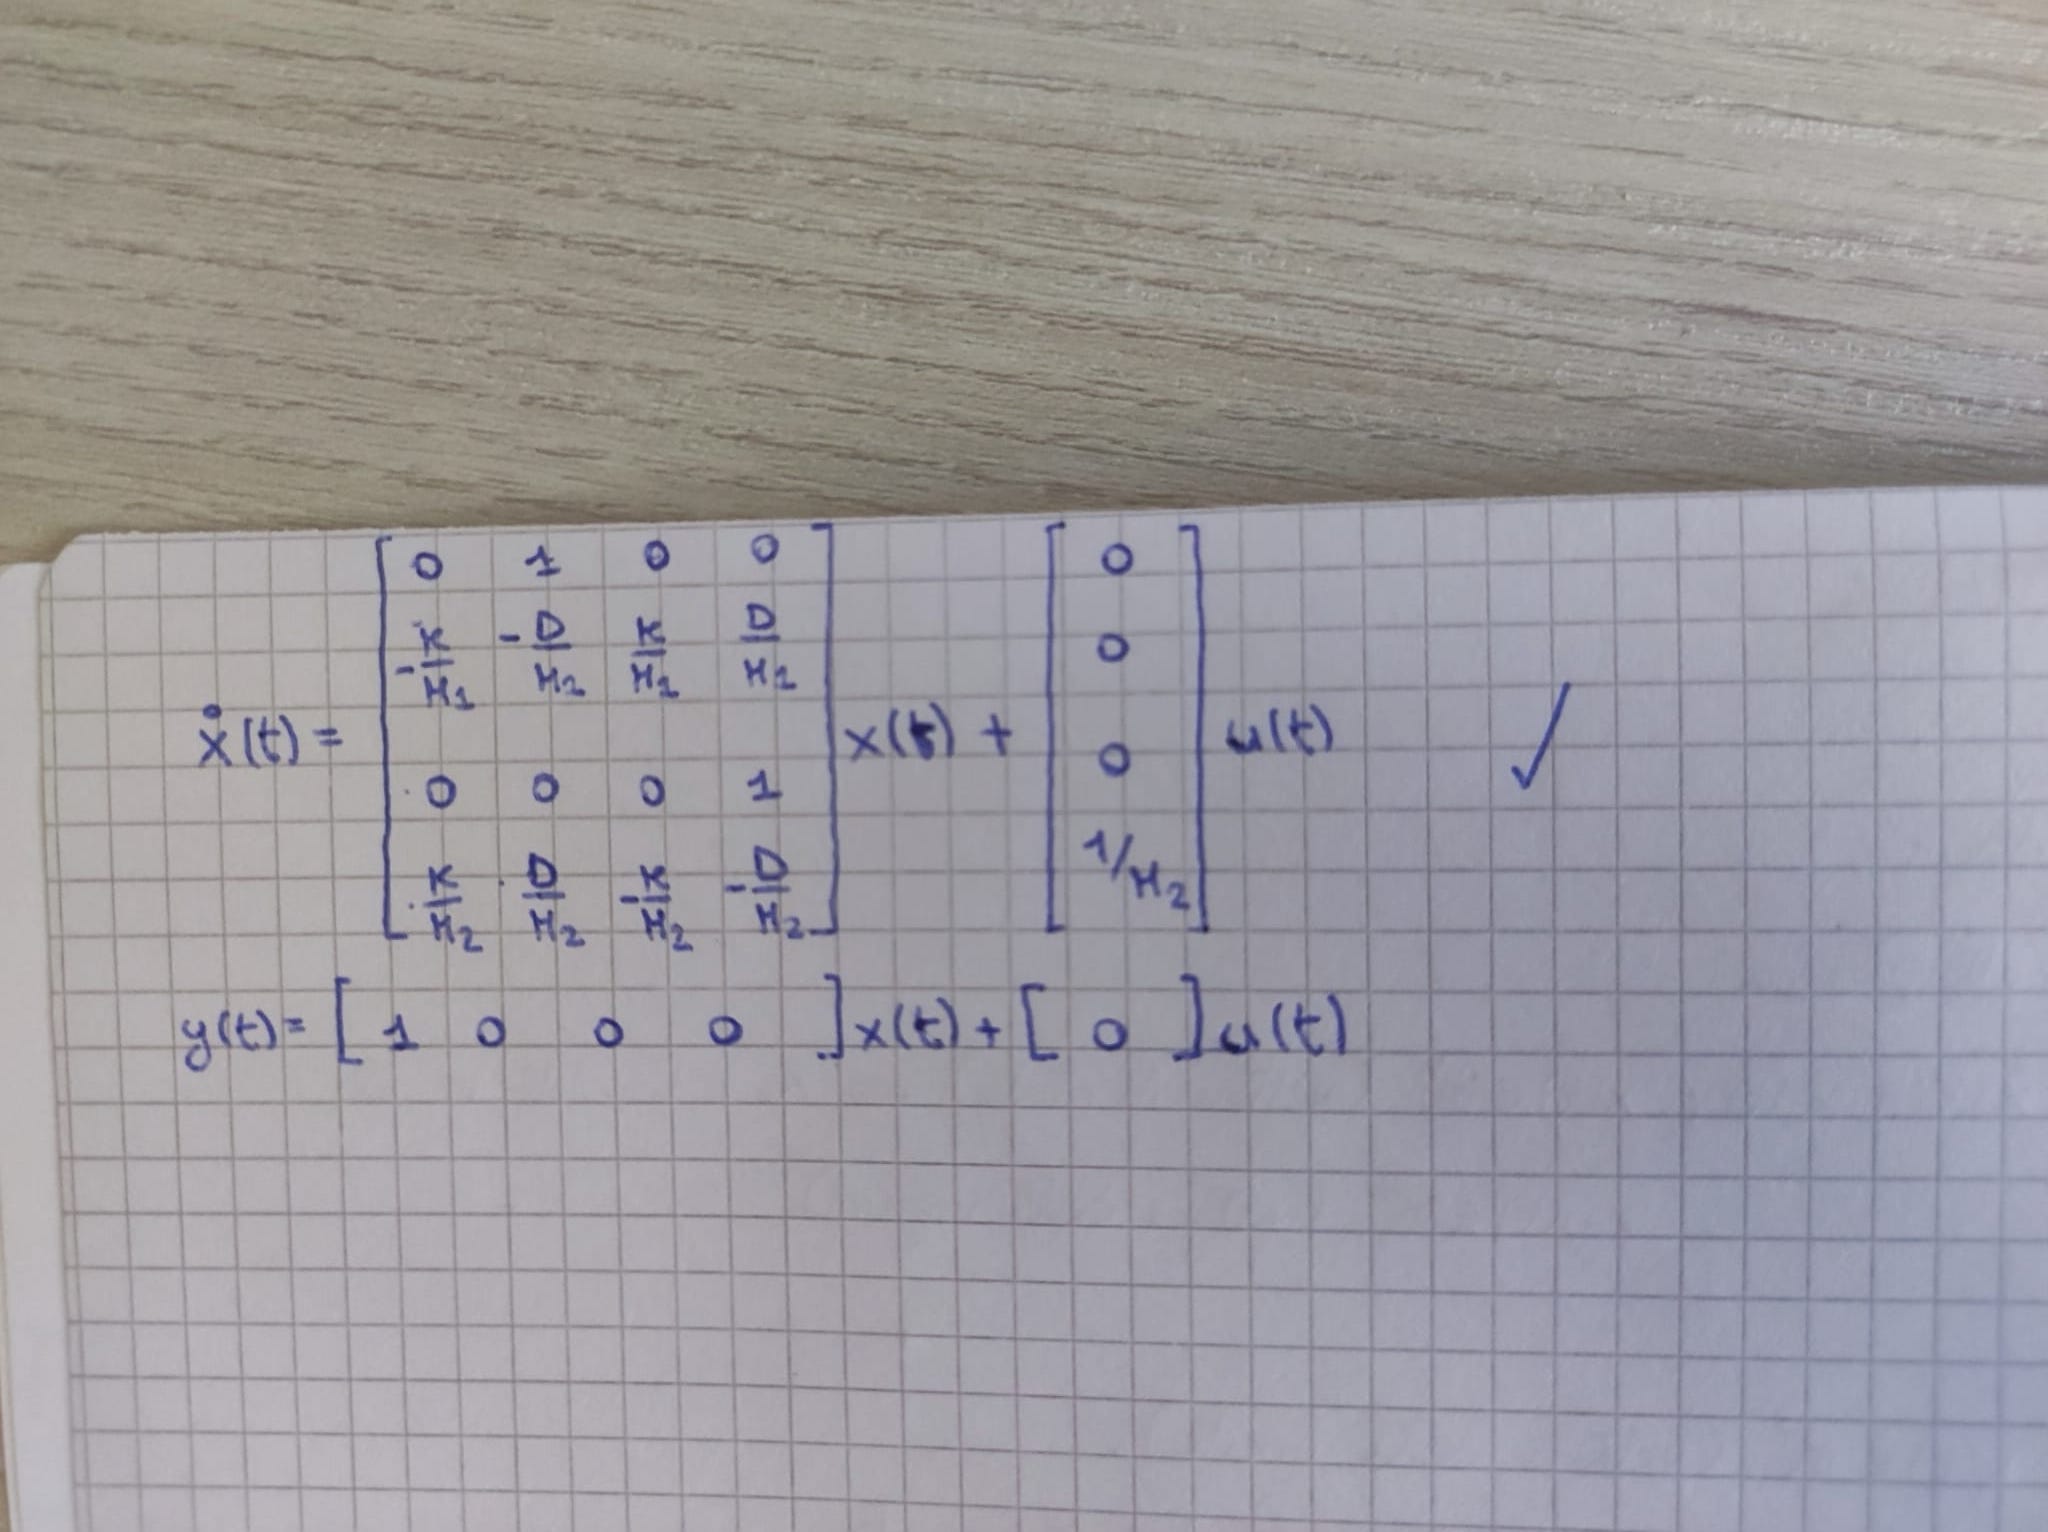 ẋ(t) = [ 0 1 0 0 ; -K/M₁ -D/M₂ K/M₂ D/M₂ ; 0 0 0 1 ; K/M₂ D/M₂ -K/M₂ -D/M₂ ] x(t) + [ 0 ; 0 ; 0 ; 1/M₂ ] u(t) ✓
y(t) = [ 1 0 0 0 ] x(t) + [ 0 ] u(t)